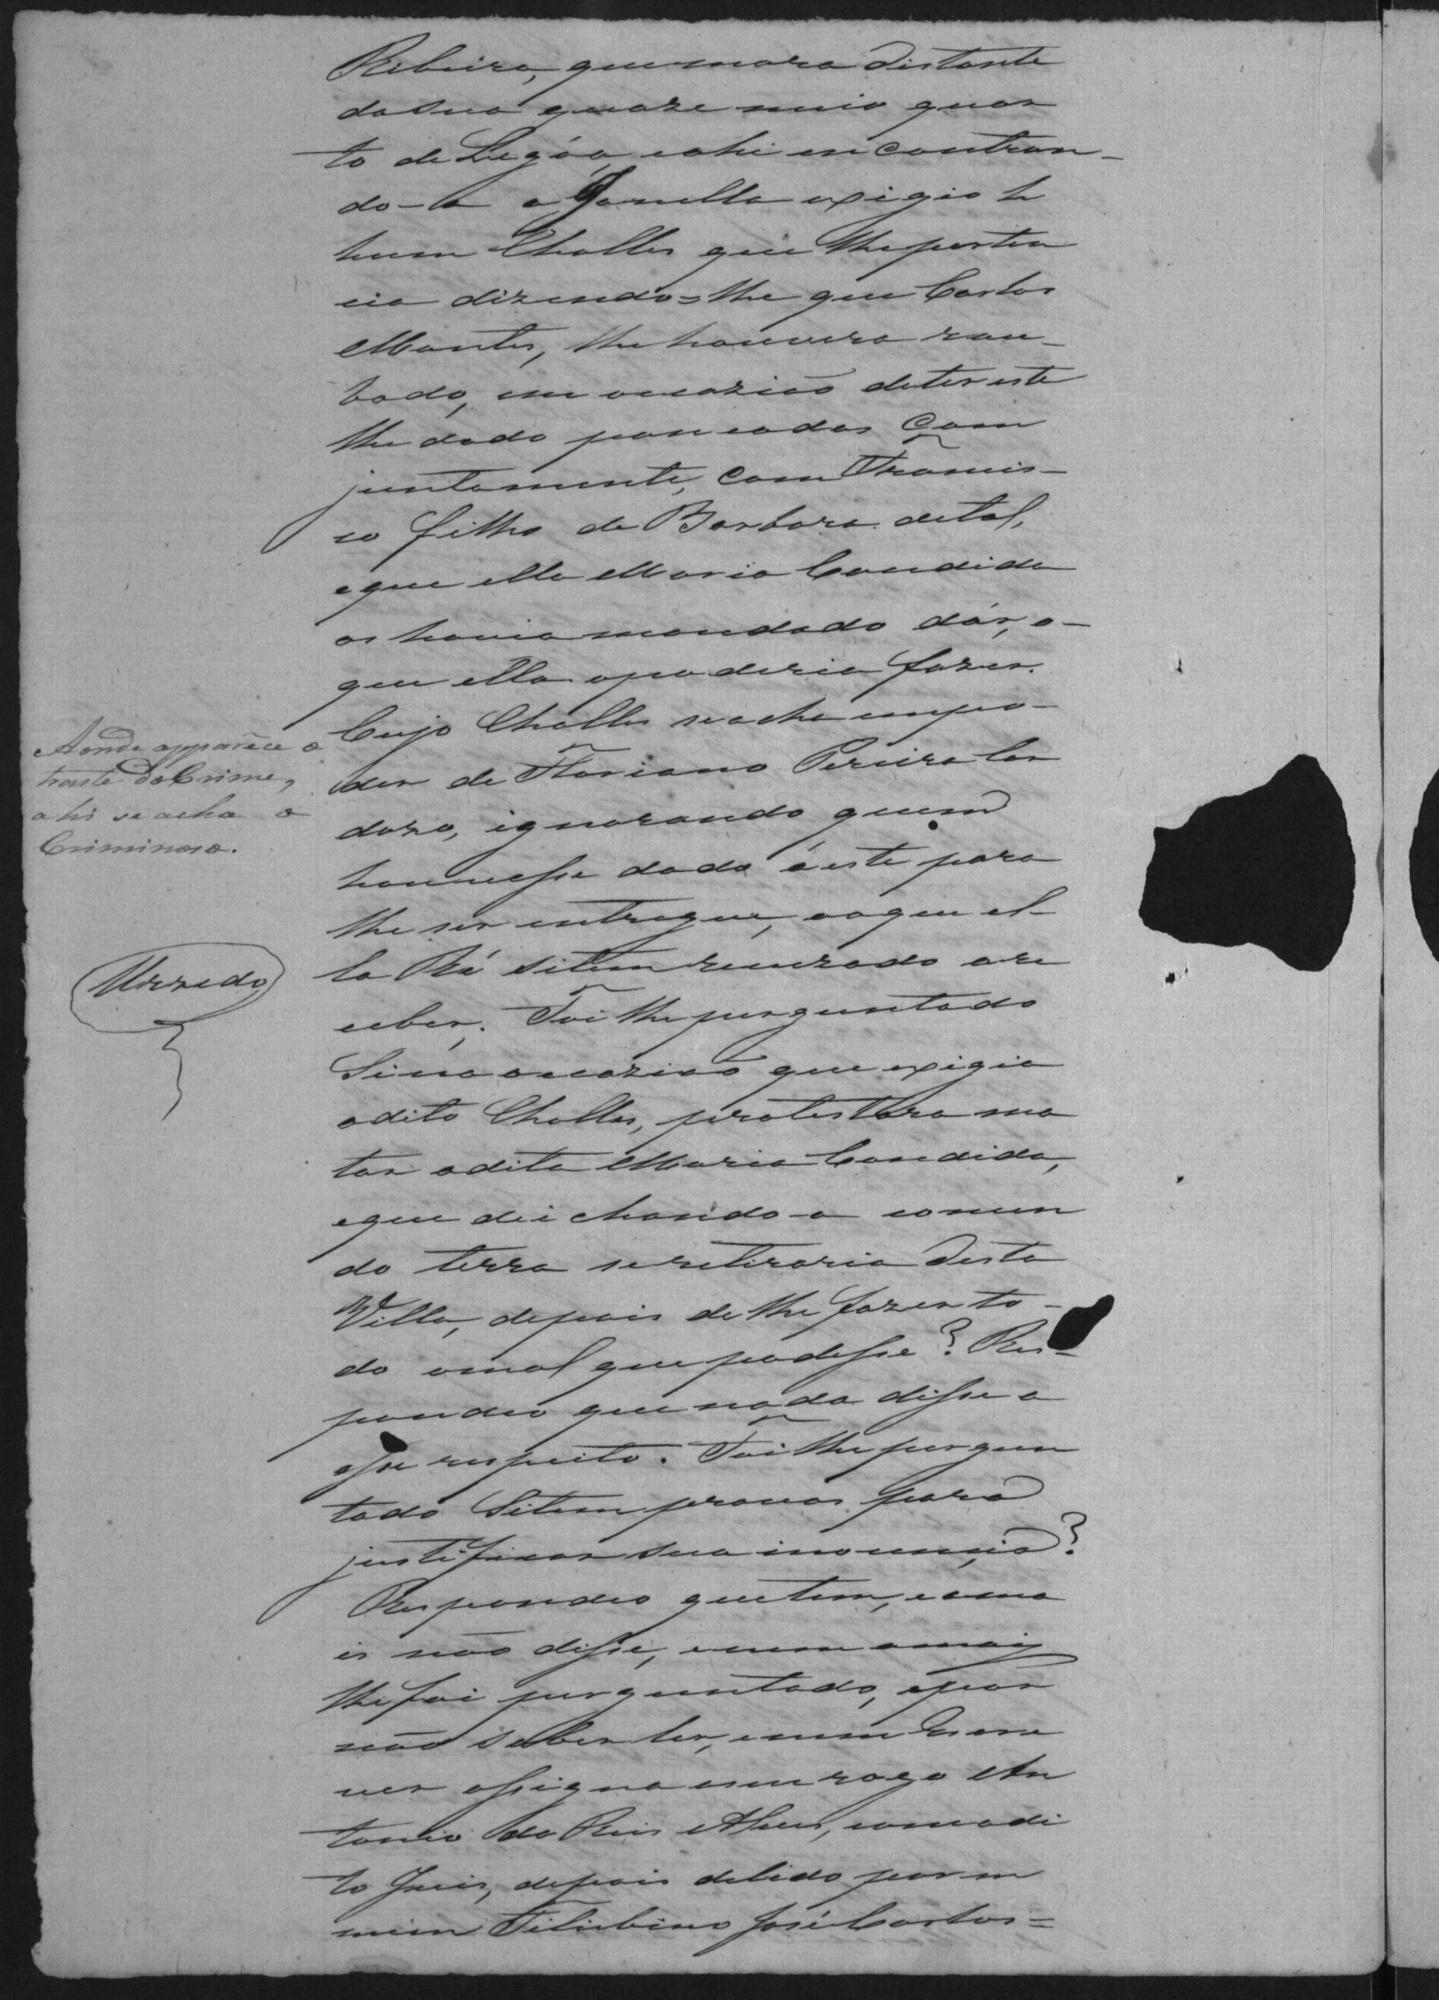 Ribeiro, que mora distante
da sua quaze meio quar
to de Legóa, e ahi encontran-
do-a a Janella exigio h
hum Challes que lhe perten
cia dizendo=lhe que Carlos
Montes, lhe houvera rou-
bado, em occazião deter este
lhe dado pancadas Com
juntamente, com Francis-
co filho de Barbara detal,
e que ella Maria Candida
as havia mandado dár, o-
que ella apoderia fazer.
Cujo Challes se acha em po-
der de Floriano Pereira Car
dozo, ignorando quem
houvesse dado á este para
lhe ser entregue, ao que el-
la Ré sitem recuzado a re
ceber. Foi lhe perguntado
Si na occazião que exigia
o dito Challes, protestára ma
tar a dita Maria Candida,
e que deichando-a comen
do terra se retiraria desta
Villa, depois de lhe fazer to-
do o mal que podesse? Res-
pondeo que nada disse a
esse respeito. Foi lhe pergun
tado Sitem provas para
justificar sua inocencia?
Respondeo que tem, e a ma
is não disse, e nem a mais
lhe foi perguntado, e por
não saber ler, e nem Escre
ver assigna a seu rogo An
tonio do Reis Alves, com o di
to Juis, depois de lido por m
mim Felisbino José Carlos=
Aonde apparece o
traste do Crime,
ahi se acha o
Criminoso.
Urzedo